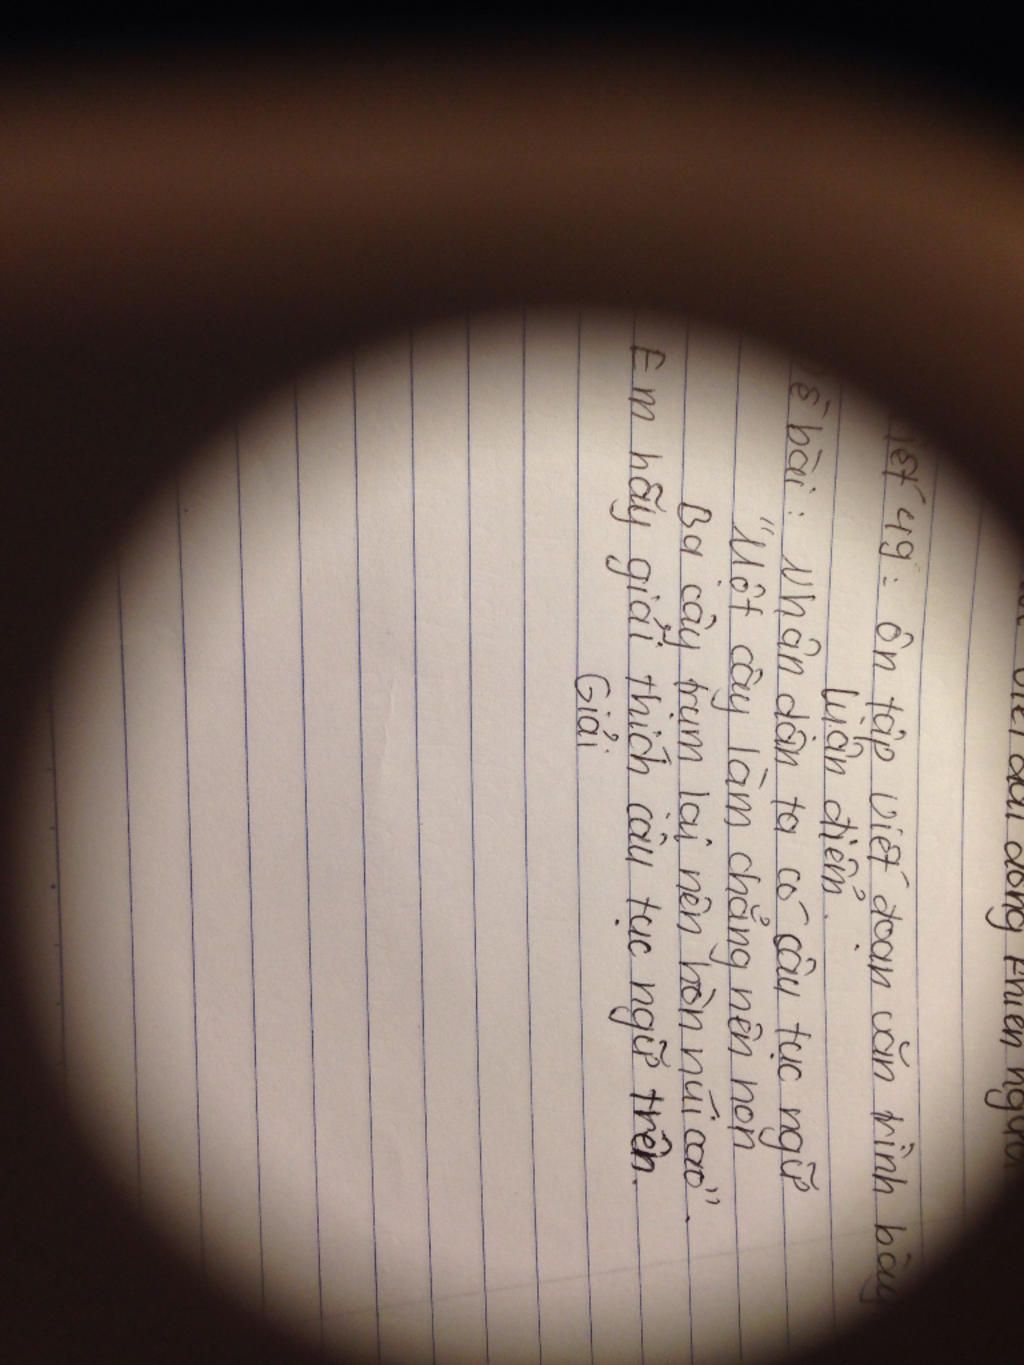 viết đoạn
49: ôn tập viết đoạn văn trình bày
luận điểm.
bài: Nhân dân ta có câu tục ngữ
"Một cây làm chẳng nên non
Ba cây trụm lại nên hòn núi cao".
Em hãy giải thích câu tục ngữ trên.
Giải